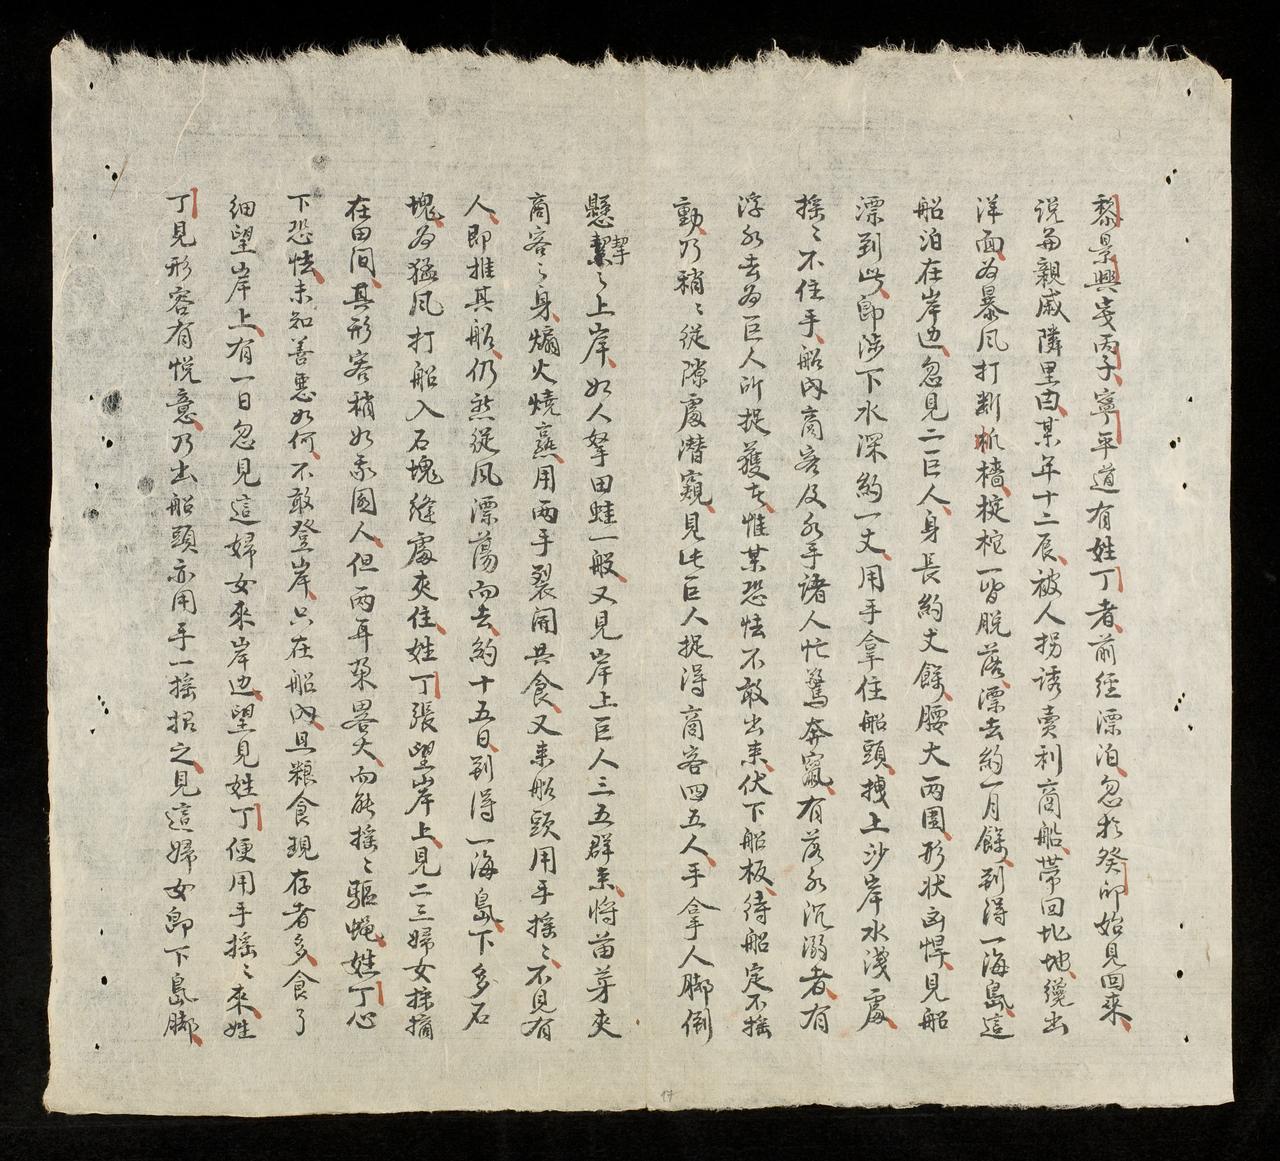 黎景興歲丙子寧平道有姓丁者前經漂泊忽於癸卯始見回來
説男親戚隣里曰某年十二辰被人拐誘賣利商船帶回北地纔出
洋面為暴風打断帆檣椗柁一皆脱落漂去約一月餘到得一海島這
船泊在岸边忽見二巨人身長約丈餘腰大兩圍形状凶悍見船
漂到此即涉下水深約一丈用手拿住船頭拽上沙岸水淺處
搖〻不住手船內商客及水手諸人忙驚奔竄有落水沉溺者有
浮水去為巨人所捉獲者惟某恐怯不敢出来伏下船板待船定不搖
動乃稍〻從隙處潛窺見此巨人捉得商客四五人手拿人脚倒
懸挈〻上岸如人拏田蛙一般又見岸上巨人三五群来將苗芽夾
商客之身煽火燒熹用兩手裂開共食又来船頭用手搖〻不見有
人即推其船仍然從風漂蕩而去約十五日到得一海島下多石
塊為猛风打船入石塊縫處夾住姓丁張望岸上見二三婦女採摘
在田间其形容稍如我國人但兩耳朶畧大而能搖〻驅蝿姓丁心
下恐怯未知善惡如何不敢登岸只在船內且粮食現存者多食了
细望岸上有一日忽見這婦女來岸边望見姓丁便用手搖〻來姓
丁見形容有悅意乃出船頭亦用手一搖招之見這婦女即下島脚
17